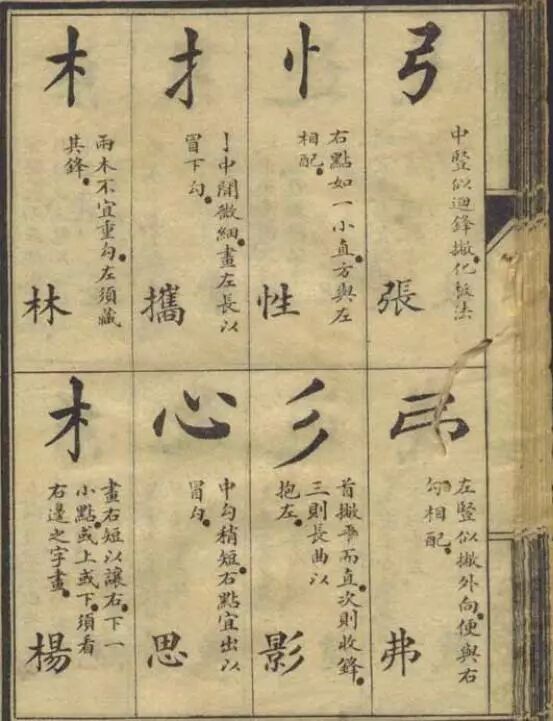 弓
中豎似迴鋒撇化板法
張
忄
右點如一小直方與左
相配
性
扌
亅中間微細畫左長以
冒下勾
攜
木
兩木不宜重勾左須藏
其鋒
林
弗
左豎似撇外向便與右
勾相配
弗
彡
首撇平而直次則收鋒
三則長曲以
抱左
影
心
中勾稍短右點宜出以
冒勾
思
木
畫右短以讓右下一
小點或上或下須看
右邊之字畫
楊